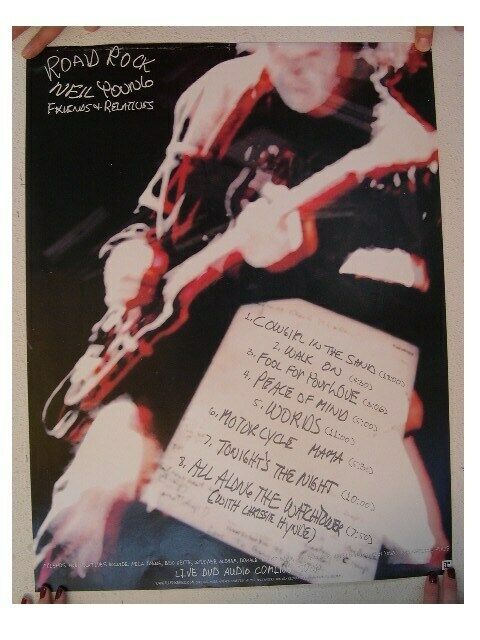 ROAD ROCK
NEIL YOUNG
FRIENDS & RELATIVES
1. COWGIRL IN THE SAND (18:00)
2. WALK ON
3. FOOL FOR YOUR LOVE
4. PEACE OF MIND
5. WORDS (11:00)
6. MOTORCYCLE MAMA
7. TONIGHT'S THE NIGHT (10:00)
8. ALL ALONG THE WATCHTOWER (7:50)
(WITH CHRISSIE HYNDE)
LIVE DVD AUDIO COMING